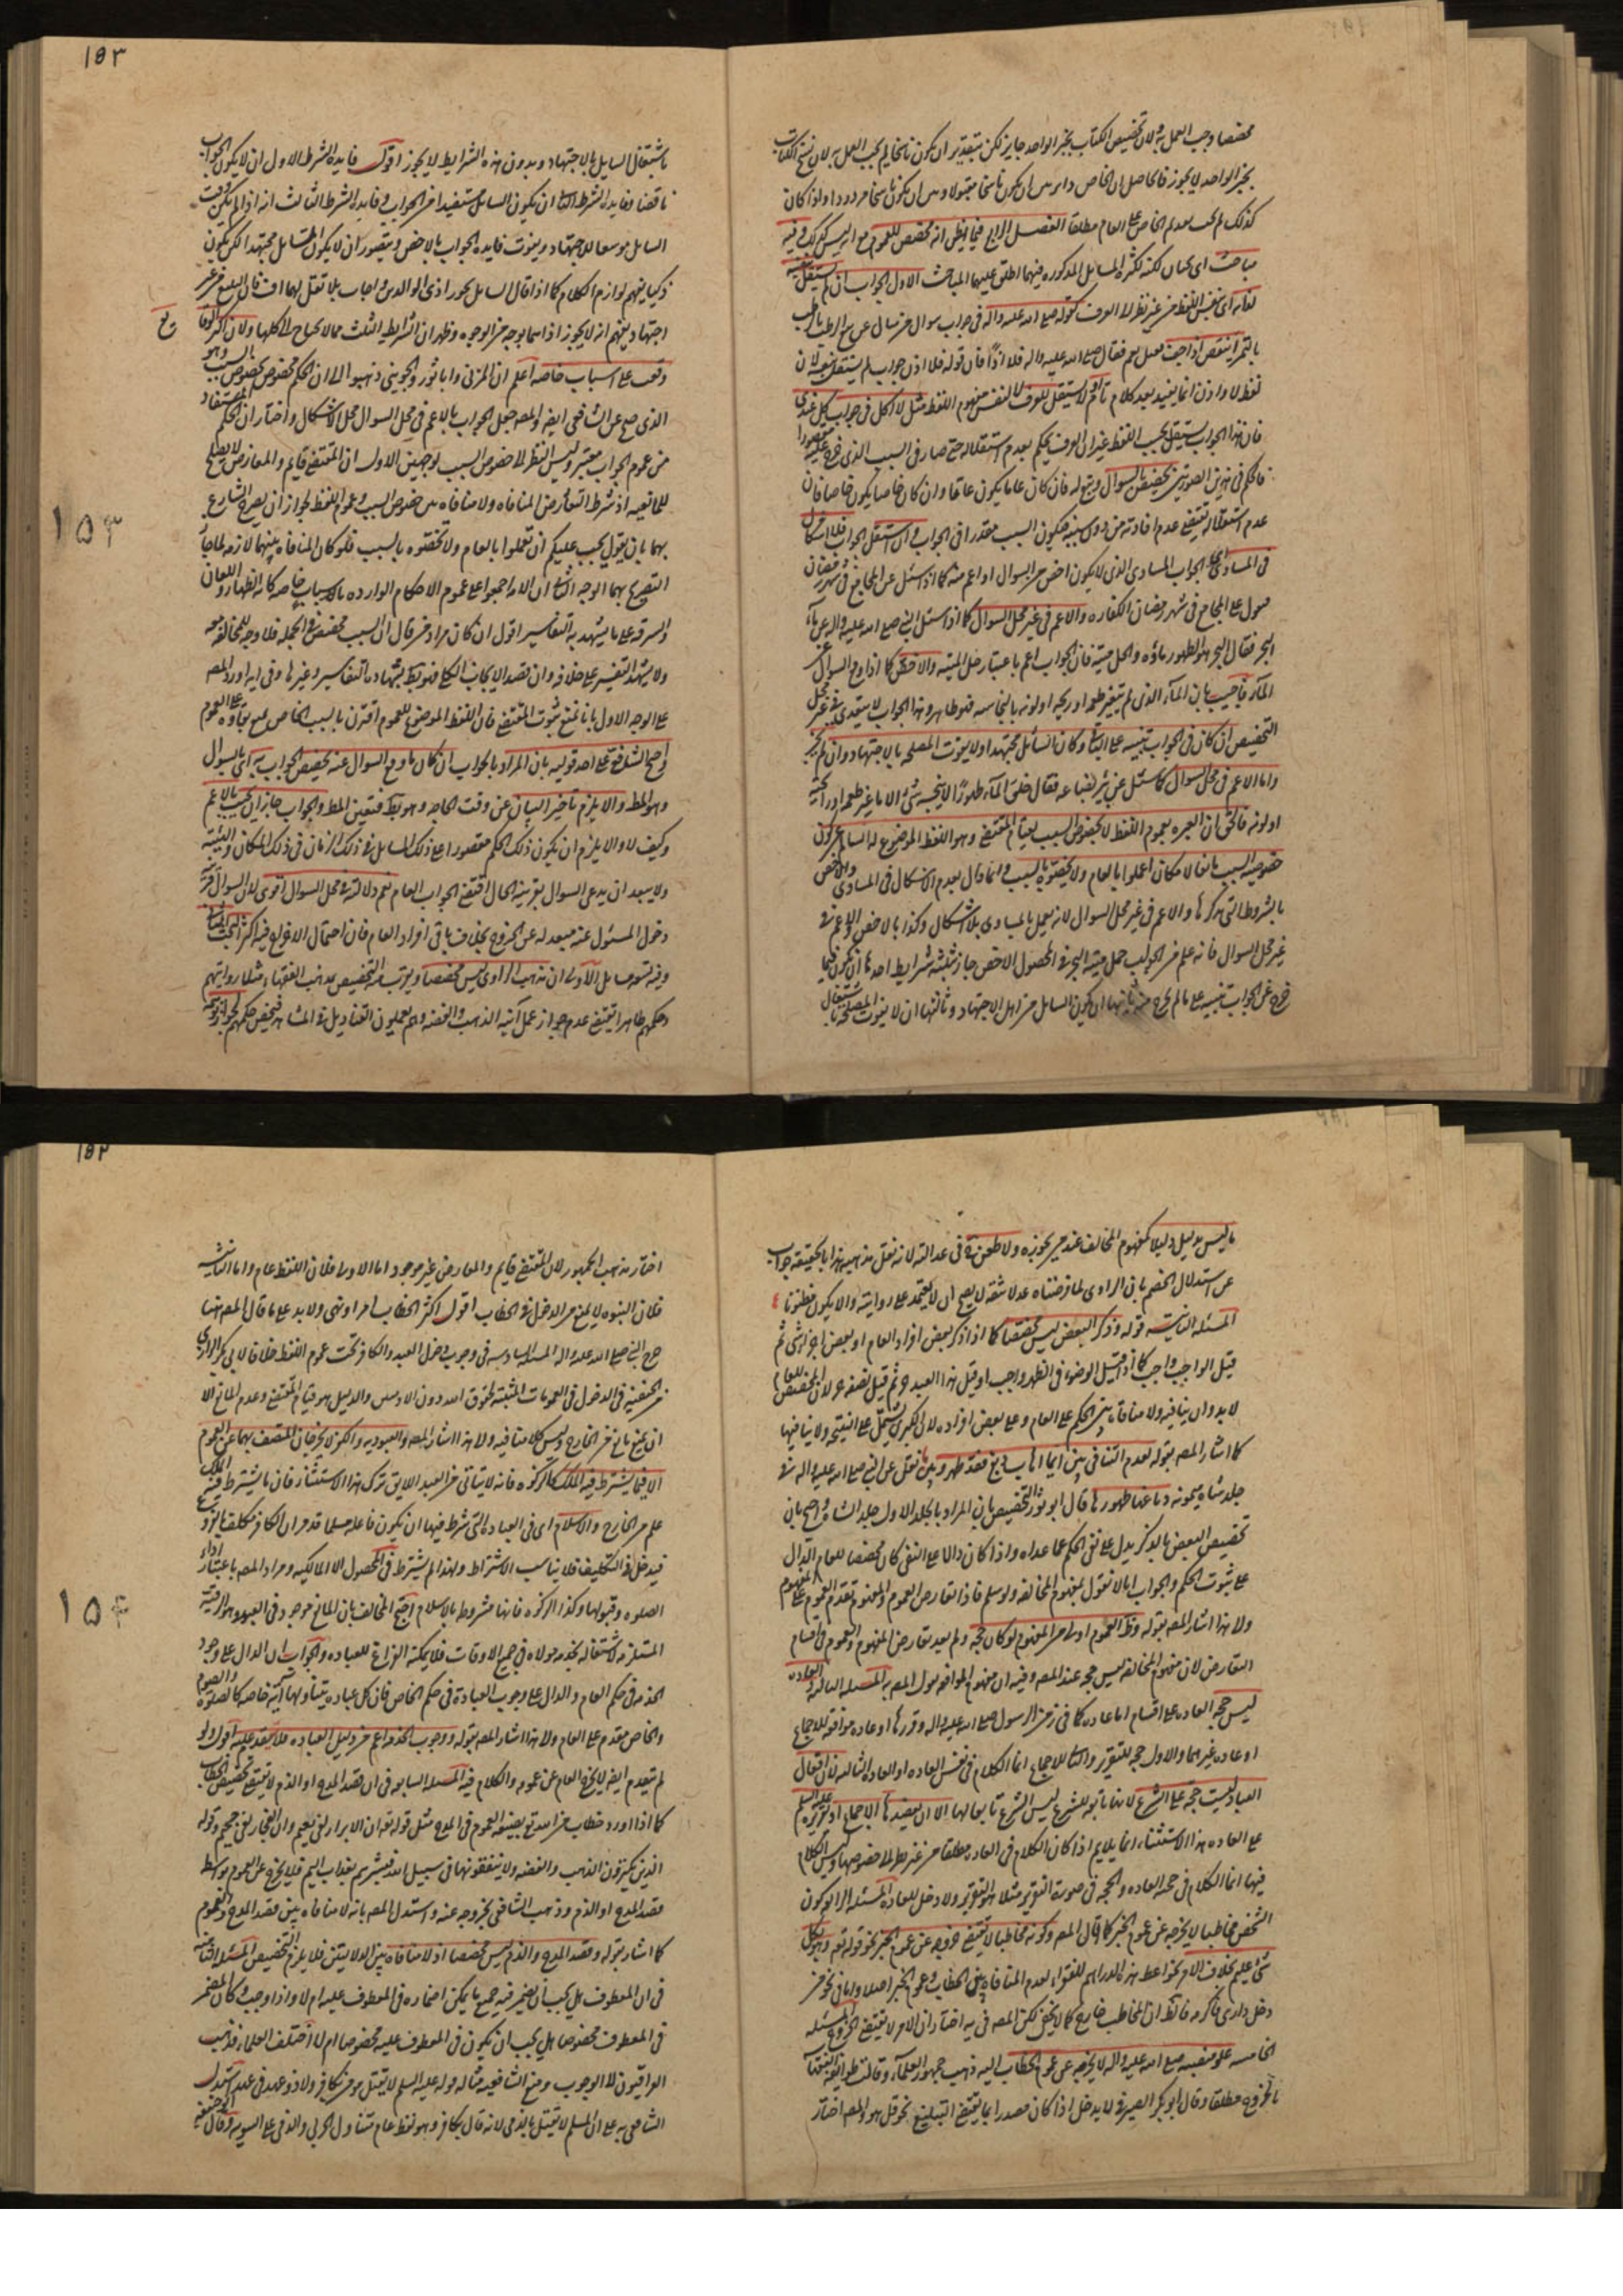 مخصصا وجب العمل به ولان تخصيص الكتاب بخبر الواحد جايز لكن بتقدير ان يكون ناسخا لم يجب العمل به لان نسخ الكتاب
بخبر الواحد لا يجوز فالحاصل ان الخاص داير بين ان يكون ناسخا مقبولا وبين ان يكون ناسخا مردودا واذا كان
كذلك لم يجب تقديم الخاص على العام مطلقا الفصل الرابع فيما يظن انه مخصص للعموم مع انه ليس كذلك وفيه
مباحث اى بحثان لكنه لكثرة المسائل المذكورة فيهما اطلق عليهما المباحث الاول الجواب ان لم يستقل بنفسه
لغاية اى بنفس اللفظ من غير نظر الى العرف كقوله صلى الله عليه واله فى جواب سوال من سال عن بيع الرطب
بالتمر اينقص اذا جف فقيل نعم فقال صلى الله عليه واله فلا اذًا فان قوله فلا اذن جواب لم يستقل بنفسه لان
لفظ لا واذن انما يفيد بعد كلام تام او لم يستقل للعرف لا لنفس مفهوم اللفظ مثل لا اكل فى جواب كل عندى
فان هذا الجواب يستقل بحسب اللفظ غير ان العرف يحكم بعدم استقلاله حتى صار فى السبب الذى خرج عليه مقصورا
فالحكم فى هذين الصورتين تخصيص السوال وتبع له فان كان عاما يكون عاما وان كان خاصا يكون خاصا فان
عدم استقلاله يقتضى عدم افادته من دون سببه فيكون السبب مقدرا فى الجواب وان استقل الجواب فلا اشكال
فى المساوى اى الجواب المساوى الذى لا يكون اخص من السوال او اعم منه كما اذا سئل عن المجامع فى شهر رمضان
فيقول على المجامع فى شهر رمضان الكفاره والاعم فى غير محل السوال كما اذا سئل النبى صلى الله عليه واله عن ماء
البحر فقال البحر هو الطهور ماؤه والحل ميتته فان الجواب اعم باعتبار حل الميته والاخص كما اذا وقع السوال عن
الماء فاجيب بان الماء الذى لم يتغير طعمه او ريحه او لونه بالنجاسه فهو طاهر وهذا الجواب لا يتعدى فى غير محل
التخصيص ان كان فى الجواب تنبيه على الباقى وكان السائل مجتهدا ولا يفوت المصلحه بالاجتهاد وان لم يجز
واما الاعم فى محل السوال كما سئل عن بئر بضاعه فقال خلق الماء طهورًا لا ينجسه شئ الا ما غير طعمه او رائحته
او لونه فالحق ان العبره بعموم اللفظ لا بخصوص السبب لقيام المقتضى وهو اللفظ الموضوع له السالم عن كون
خصوصيه السبب مانعا لامكان اعملوا بالعام ولا تخصوه بالسبب وانما قال بعدم الاشكال فى المساوى والاخص
بالشروط التى ذكرها والاعم فى غير محل السوال لانه يعمل بالمساوى بلا اشكال وكذا بالاخص والاعم فى
غير محل السوال فانه علم من الجواب حل ميتة البحر فى الحصول الاخص جاز بثلثة شرايط احدها ان يكون فيما
خرج عن الجواب تنبيه على ما لم يخرج منه ثانيها ان يكون السايل من اهل الاجتهاد وثالثها ان لا يفوت المصلحة باشتغال
١٥٣
باشتغال السايل بالاجتهاد وبدون هذه الشرايط لا يجوز اقول فايدة الشرط الاول ان لا يكون الجواب
ناقصا وفايدة الشرط الثانى ان يكون السايل مستفيدا من الجواب وفايدة الشرط الثالث انه اذا لم يكن الوقت
السايل موسعا للاجتهاد ويفوت فايدة الجواب بالاخص ويتصور ان لا يكون السايل مجتهدا لكن يكون
ذكيا يفهم لوازم الكلام كما اذا قال لسايل يجوز اذى الوالدين واجاب بلا تقل لهما اف قال البليغ من غير
اجتهاد يفهم انه لا يجوز اذاهما بوجه من الوجوه وظهر ان الشرايط الثلث مما لا يحتاج الى كلها ولان اكثر الوقايع
وقعت على اسباب خاصه اعلم ان المزنى وابا ثور والجوينى ذهبوا الى ان الحكم مخصوص بخصوص السبب وهو
الذى صح عن الشافعى ايضا والمصه جعل الجواب بالاعم فى محل السوال محل الاشكال واختار ان الحكم المستفاد
من عموم الجواب معتبر وليس النظر الى خصوص السبب لوجهين الاول ان المقتضى قايم والمعارض لا يصلح
للمانعيه اذ شرط التعارض المنافاه ولا منافاه بين خصوص السبب وعموم اللفظ لجواز ان يصرح الشارع
بهما بان يقول يجب عليكم ان تعملوا بالعام ولا تخصوه بالسبب فلو كان المنافاه بينهما لازمه لما جاز
التصريح بهما الوجه الثانى ان الامه اجمعوا على عموم الاحكام الوارده بالاسباب خاصه كاية الظهار واللعان
والسرقه على ما يشهد به التفاسير اقول ان كان مراد من قال ان السبب مخصص فى الجمله فلا وجه للمخالفه معه
ولا يشهد التفسير على خلافه وان قصد الايجاب الكلى فهو بط بشهادة التفاسير وغيرها وفى ايه اورد المصه
على الوجه الاول بانا نمنع ثبوت المقتضى فان اللفظ الموضوع للعموم اقترن بالسبب الخاص فيمنع بقاوه على العموم
واحتج الشافعى على احد قوليه بان المراد بالجواب ان كان ما وقع السوال عنه تخصيص الجواب به اى بالسوال
وهو المط والا يلزم تاخير البيان عن وقت الحاجه وهو بط فتعين المط والجواب جاز ان يجيب بالاعم
وكيف لا والا يلزم ان يكون ذلك الحكم مقصورا على ذلك السايل فى ذلك الزمان فى ذلك المكان والهيئة
ولا يبعد ان يدعى السوال بقرينة الحال اقتضى الجواب العام نعم دلالته فى محل السوال اقوى لان السوال قرينة
دخول المسئول عنه مبعد له عن الخروج بخلاف باقى افراد العام فان احتمال الاخراج فيه اكثر البحث الثانى
وفيه تسع مسايل الاولى ان مذهب الراوى ليس مخصصا ويترتب التخصيص بمذهب الفقهاء مثلا روايتهم
وحكمهم ظاهرا يقتضى عدم جواز عمل آنية الذهب والفضه وهم يعملون القناديل فى المشاهد فيخص حكمهم لجواز
١٥٣
ما ليس بدليل دليلا كمفهوم المخالف عند من يجوزه ولا طعن فى عدالته لانه نقل مذهبه هذا بالحقيقه جواب
عن استدلال الخصم بان الراوى لما فرضناه عدلا ثقه لا يصح ان لا يعتمد على روايته والا يكون مطعونا
المسئله الثانيه قوله وذكر البعض ليس مخصصا كما اذا ذكر بعض افراد العام او بعض اجزاء شى ثم
قيل الواجب واجب كما اذا قيل الوضوء فى الطهر واجب او قيل هذا العبد حر ثم قيل نصفه حر لان المخصص للعام
لا بد وان ينافيه ولا منافاة بين الحكم على العام وعلى بعض افراده لان الكبرى تشتمل على النتيجه ولا ينافيها
كما اشار المصه بقوله لعدم التنافى بين ايما اهاب دبغ فقد طهر وبين ما نقل عن النبى صلى الله عليه واله فى
جلد شاة ميمونه دباغها طهورها قال ابو ثور التخصيص بان المراد بالجلد الاول جلد الشاة واحتج بان
تخصيص البعض بالذكر يدل على نفى الحكم عما عداه واذا كان دالا على النفى كان مخصصا للعام الدال
على ثبوت الحكم والجواب انا لا نقول بمفهوم المخالفه ولو سلم فاذا تعارض العموم والمفهوم تقدم العموم على المفهوم
ولا هذا اشار المصه بقوله وظ العموم اولى من المفهوم لو كان حجه ولم يعد تعارض المفهوم والعموم فى اقسام
التعارض لان مفهوم المخالفه ليس حجه عند المصه وفيه ان مفهوم الموافقه يقول المصه به المسئله الثالثه العاده
ليس حجه العاده على اقسام اما عاده كما فى زمن الرسول صلى الله عليه واله وقررها او عاده موافقه للاجماع
او عاده غيرهما والاول حجه للتقرير والثانى للاجماع انما الكلام فى نفس العاده او العاده الثالثه لان افعال
العباد ليست حجة على الشرع لانها تابعه للشرع ليس الشرع تابعا لها الا ان يعضدها الاجماع او تقريره عليه السلم
على العاده هذا الاستثناء انما يلايم اذا كان الكلام فى العاده مطلقا من غير نظر الى خصوصها وليس الكلام
فيها انما الكلام فى حجيه العاده والحجه فى صورة التقرير مثلا هو التقرير ولا دخل للعاده المسئله الرابعه كون
الشخص مخاطبا لا يخرجه عن عموم الخبر كما قال المصه وكونه مخاطبا لا يقتضى خروجه عن عموم الخبر نحو قوله تع وهو بكل
شئ عليم بخلاف الامر نحو اعط هذه الدراهم للفقراء لعدم المنافاة بين الخطاب وعموم الخبر اصلا واما فى نحو من
دخل دارى فاكرمه فالظ ان المخاطب خارج كما لا يخفى لكن المصه فى يه اختار ان الامر لا يقتضى الخروج المسئله
الخامسه علو منصبه صلى الله عليه واله لا يخرجه عن عموم الخطاب اليه ذهب جمهور العلماء وقالت طائفة الفقهاء
بالخروج مطلقا وقال ابو بكر الصيرفى لا يدخل اذا كان مصدرا بما يقتضى التبليغ نحو قل هو والمصه اختار
١٥٤
اختار مذهب الجمهور لان المقتضى قايم والمعارض غير موجود اما الاولى فلان اللفظ عام واما الثانيه
فلان النبوه لا يمنع من الدخول فى الخطاب اقول اكثر الخطاب امر او نهى ولا بد على ما قال المصه هنا
خرج النبى صلى الله عليه واله المسئله السادسه فى وجوب دخول العبد والكافر تحت عموم اللفظ خلافا لابى بكر الرازى
من الحنفيه فى الدخول فى العمومات المثبته لحقوق الله دون الادميين والدليل هو قيام المقتضى وعدم المانع الا
ان يمنع مانع من الخارج وليس كلامنا فيه ولا هذا اشار المصه والعبوديه والكفر لا يخرجان المتصف بهما عن العموم
الا فيما يشترط فيه الملك كالزكوه فانه لا يتاتى من العبد اللايق ترك هذا الاستثناء فان ما يشترط فيه الملك
علم من الخارج والاسلام اى فى العبادة التى شرط فيها ان يكون فاعله مسلما قد مر ان الكافر مكلف بالفروع
فيدخل فى التكليف فلا يناسب الاشتراط ولهذا لم يشترط فى الحصول الا المالكيه ومراد المصه باعتبار اداء
الصلوه وقبولها وكذا الزكوه فانها مشروط بالاسلام احتج المخالف بان المانع موجود فى العبد وهو الرقية
المستلزمه لاشتغاله بخدمه مولاه فى جميع الاوقات فلا يمكنه الفراغ للعباده والجواب ان الدال على وجوب
الخدمه فى حكم العام والدال على وجوب العبادة فى حكم الخاص فان كل عباده يتناولها آية خاصه كالصلوة والصوم
والخاص مقدم على العام ولا هذا اشار المصه بقوله ووجوب الخدمه اعم من دليل العباده فلا يتقدم عليه اقول ولو
لم يتقدم ايضا لا يخرج العام عن عمومه والكلام فيه المسئله السابعه فى ان قصد المدح او الذم لا يقتضى تخصيص الخطاب
كما اذا ورد خطاب من الله تع بصيغه العموم فى المدح مثل قوله تع ان الابرار لفى نعيم وان الفجار لفى جحيم وقوله
الذين يكنزون الذهب والفضه ولا ينفقونها فى سبيل الله فبشرهم بعذاب اليم فلا يخرج عن العموم بواسطه
قصد المدح او الذم وذهب الشافعى بخروجه عنه واستدل المصه بانه لا منافاه بين قصد المدح والعموم
كما اشار بقوله وقصد المدح والذم ليس مخصصا اذ لا منافاه بين الدلالتين فلا يلزم التخصيص المسئله الثامنه
فى ان المعطوف هل يجب ان يضمر فيه جميع ما يمكن اضماره فى المعطوف عليه ام لا واذا وجب وكان المضمر
فى المعطوف مخصوصا هل يجب ان يكون فى المعطوف عليه مخصوصا ام لا اختلف العلماء فذهب
العراقيون الى الوجوب ومنع الشافعيه مثاله قوله عليه السلم لا يقتل مومن بكافر ولا ذو عهد فى عهده استدل
الشافعى به على ان المسلم لا يقتل بالذمى لانه قال بكافر وهو لفظ عام متناول الحربى والذمى على السويه وقال ابو حنيفه
١٥٤